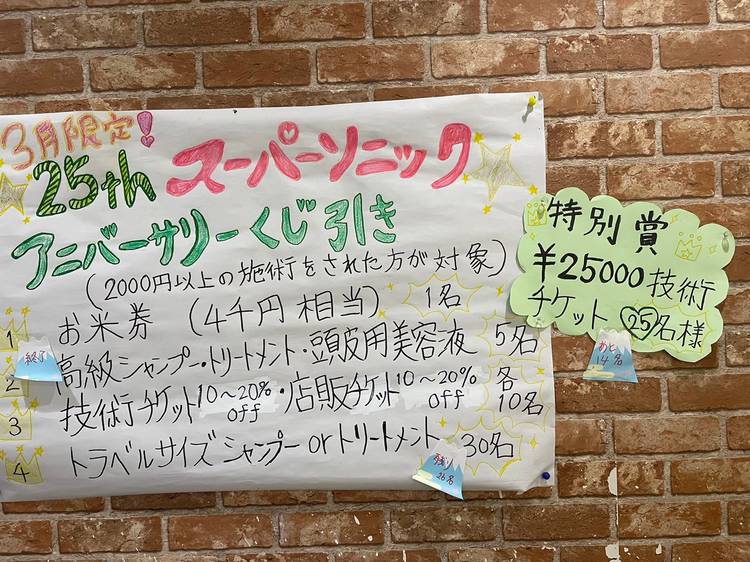 3月限定!
25th スーパーソニック
アニバーサリーくじ引き
(2000円以上の施術をされた方が対象)
1 お米券 (4千円相当) 1名
終了
2 高級シャンプー・トリートメント・頭皮用美容液 5名
3 技術チケット10~20%off・店販チケット10~20%off 各10名
4 トラベルサイズシャンプーorトリートメント 30名
残り
26名
特別賞
¥25000技術
チケット 25名様
あと
14名